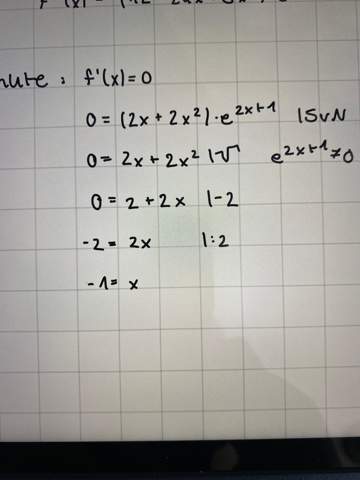 nute: f'(x)=0
0 = (2x + 2x²) · e^{2x+1} | SvN
0 = 2x + 2x² | √ e^{2x+1} ≠ 0
0 = 2 + 2x | -2
-2 = 2x | :2
-1 = x